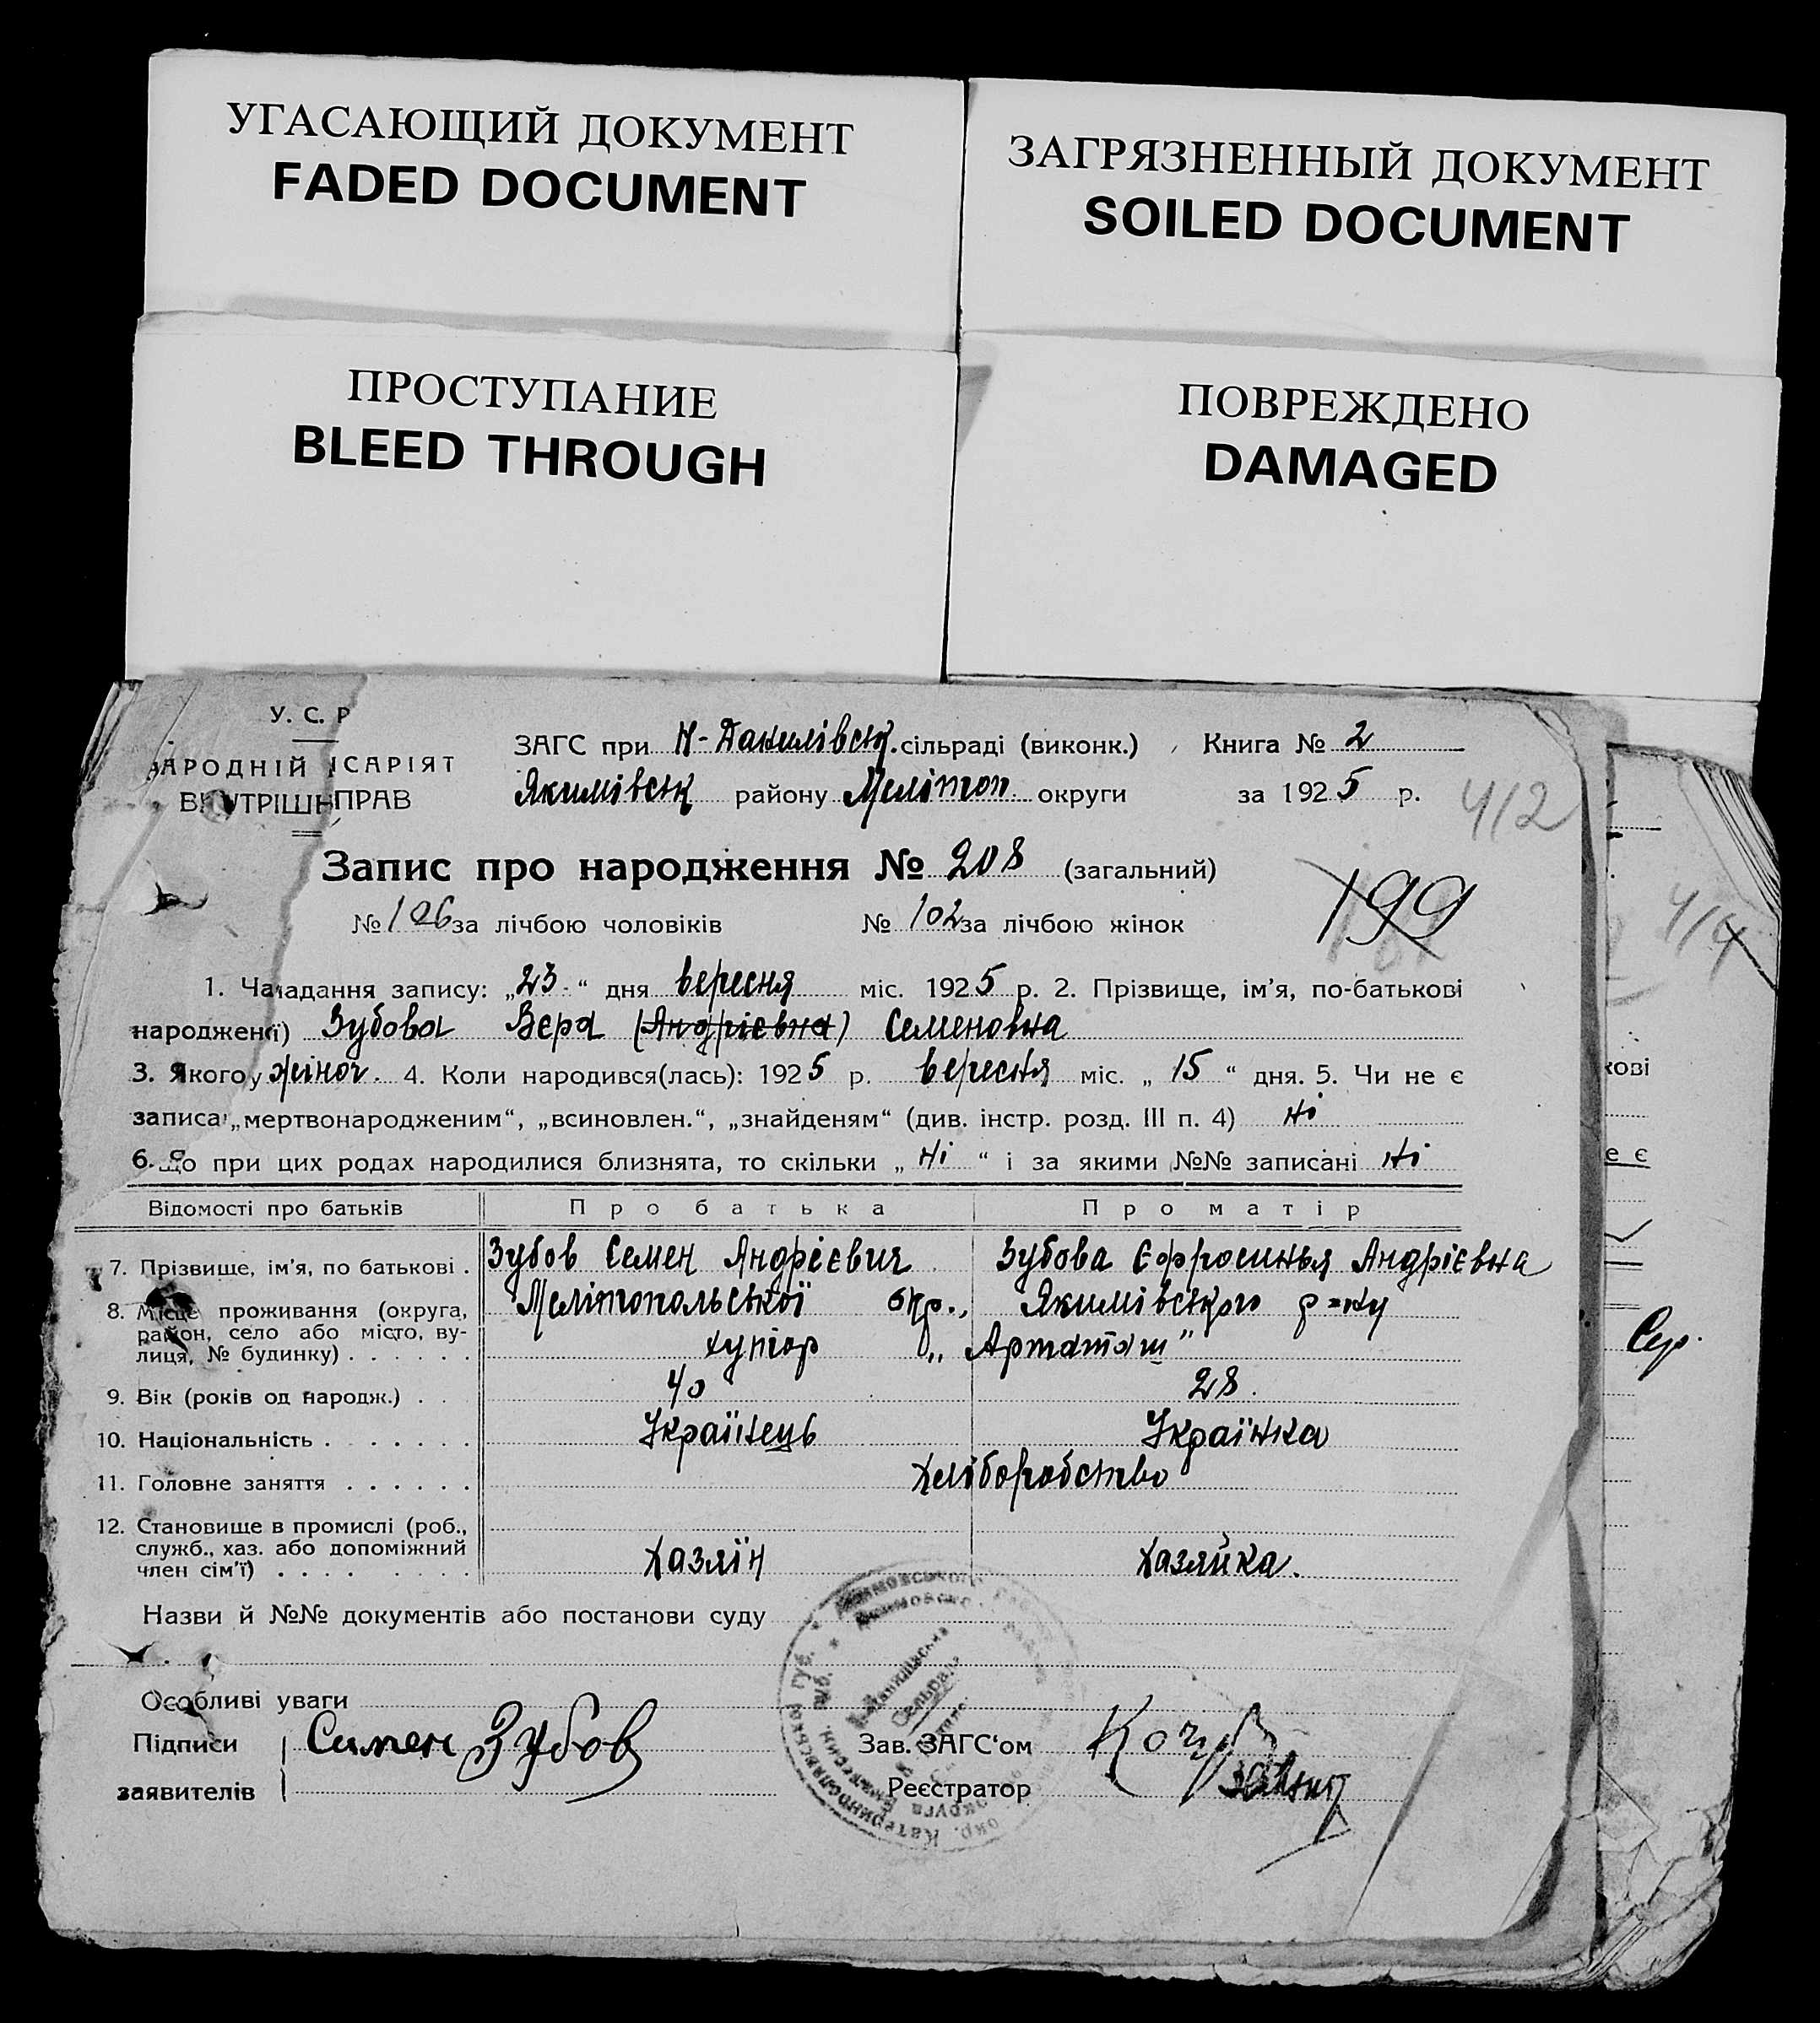 УГАСАЮЩИЙ ДОКУМЕНТ
FADED DOCUMENT
ЗАГРЯЗНЕННЫЙ ДОКУМЕНТ
SOILED DOCUMENT
ПРОСТУПАНИЕ
BLEED THROUGH
ПОВРЕЖДЕНО
DAMAGED
У. С. Р
АРОДНІЙ ІСАРІЯТ
ВНУТРІШН ПРАВ
ЗАГС при Н-Данилівськ. сільраді (виконк.) Книга № 2
Якимівськ району Мелітоп. округи за 1925 р.
412
Запис про народження № 208 (загальний)
199
№ 106 за лічбою чоловіків № 102 за лічбою жінок
414
1. Ча адання запису: „23“ дня вересня міс. 1925 р. 2. Прізвище, ім’я, по-батькові
народжено ї) Зубова Вєра (Андрієвна) Семеновна
3. Якого у жіноч. 4. Коли народився(лась): 1925 р. вересня міс. „15“ дня. 5. Чи не є
записа „мертвонародженим“, „всиновлен.“, „знайденям“ (див. інстр. розд. III п. 4) ні
6. Що при цих родах народилися близнята, то скільки „ні“ і за якими №№ записані ні
кові
е є
Відомості про батьків Про батька Про матір
7. Прізвище, ім’я, по батькові . Зубов Семен Андрієвич Зубова Єфросинья Андрієвна
8. Місце проживання (округа, район, село або місто, вулиця, № будинку) . . . . . .
Мелітопольської окр., Якимівського р-ну
хутор „Арташ”
9. Вік (років од народж.) . . 40 28.
10. Національність . . . . . . . Українець Українка
11. Головне заняття . . . . . . Хліборобство
12. Становище в промислі (роб.,
служб., хаз. або допоміжний
член сім’ї) . . . . . . . . Хазяїн Хазяйка.
Назви й №№ документів або постанови суду
Особливі уваги
Підписи Симен Зубов Зав. ЗАГС‘ом
заявителів Реєстратор